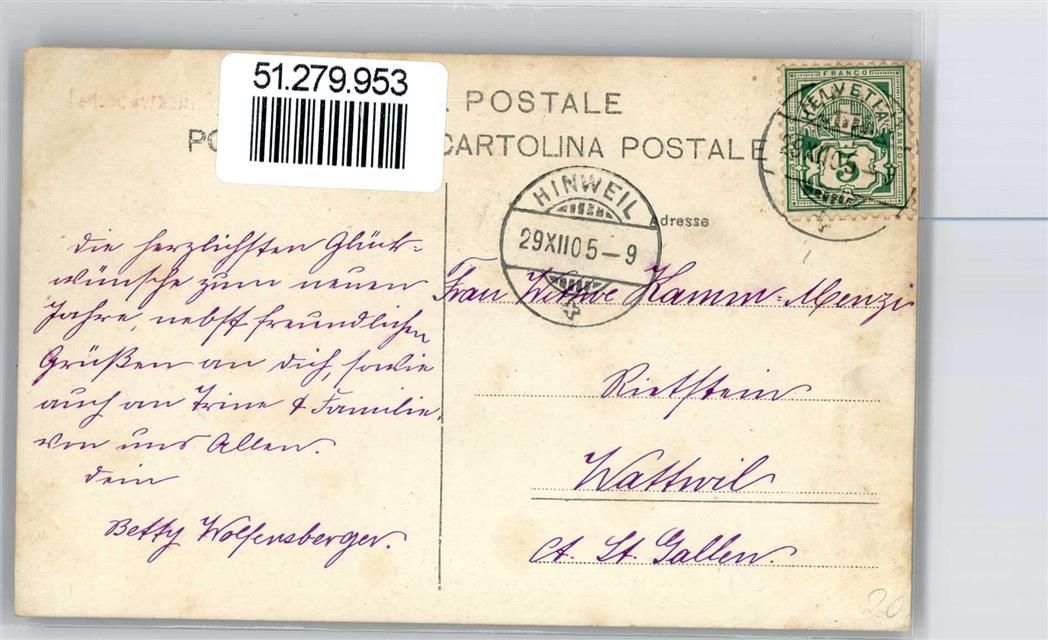 51.279.953
POSTALE
CARTOLINA POSTALE
FRANCO
HELVETIA
5
29XII05
HINWEIL
29XII05-9
Adresse
Die herzlichsten Glück-
wünsche zum neuen
Jahre, nebst freundlichen
Grüßen an dich, sowie
auch an Trine & Familie,
von uns Allen.
Dein
Betty Wolfensberger.
Frau Wittwe Kamm-Menzi
Rietstein
Wattwil
Ct. St. Gallen.
20